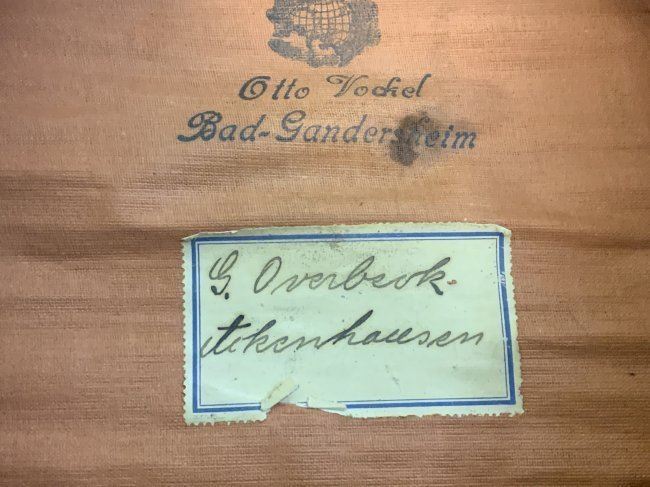 Otto Vockel
Bad-Gandersheim
G. Overbeck-
Ackenhausen